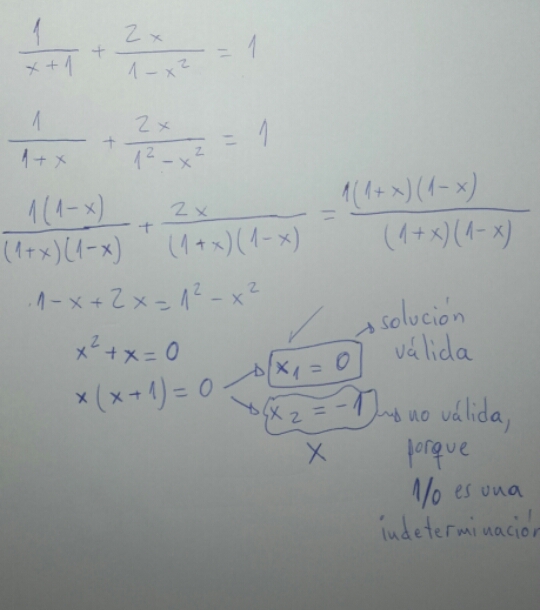 1/(x+1) + 2x/(1-x²) = 1
1/(1+x) + 2x/(1²-x²) = 1
1(1-x)/((1+x)(1-x)) + 2x/((1+x)(1-x)) = 1(1+x)(1-x)/((1+x)(1-x))
1-x+2x=1²-x²
x²+x=0
x(x+1)=0
x₁=0
solución
válida
x₂=-1
no válida,
porque
1/0 es una
indeterminación